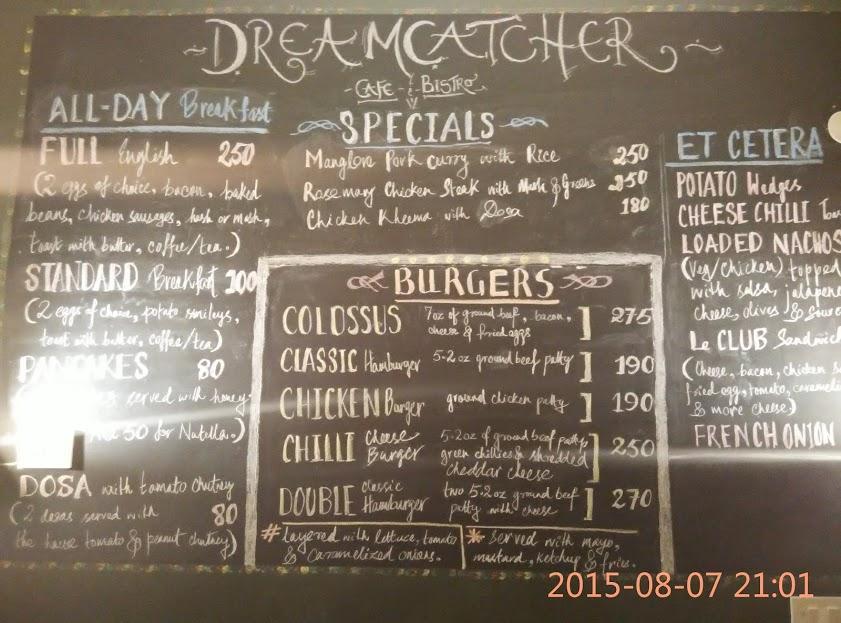 ~DREAMCATCHER~
CAFE - BISTRO
ALL-DAY Breakfast
FULL English 250
(2 eggs of choice, bacon, baked
beans, chicken sausages, hash or mash,
toast with butter, coffee/tea.)
STANDARD Breakfast 200
(2 eggs of choice, potato smileys,
toast with butter, coffee/tea)
PANCAKES 80
served with honey
50 for Nutella.)
DOSA with tomato chutney
(2 dosas served with 80
the house tomato & peanut chutney)
SPECIALS
Manglore Pork Curry with Rice 250
Rosemary Chicken Steak with Mash & Greens 250
Chicken Kheema with Dosa 180
BURGERS
COLOSSUS 7oz of ground beef, bacon, cheese & fried eggs ] 275
CLASSIC Hamburger 5-2 oz ground beef patty ] 190
CHICKEN Burger ground chicken patty ] 190
CHILLI Cheese Burger 5-2oz of ground beef patty, green chillies & shredded cheddar cheese ] 250
DOUBLE classic Hamburger two 5-2 oz ground beef patty with cheese ] 270
# layered with lettuce, tomato
& caramelized onions.
* served with mayo,
mustard, ketchup & fries.
ET CETERA
POTATO Wedges
CHEESE CHILLI
LOADED NACHOS
(veg/chicken) topped
with salsa,
cheese, olives &
Le CLUB
(cheese, bacon, chicken
fried egg, tomato,
& more cheese)
FRENCH ONION
2015-08-07 21:01